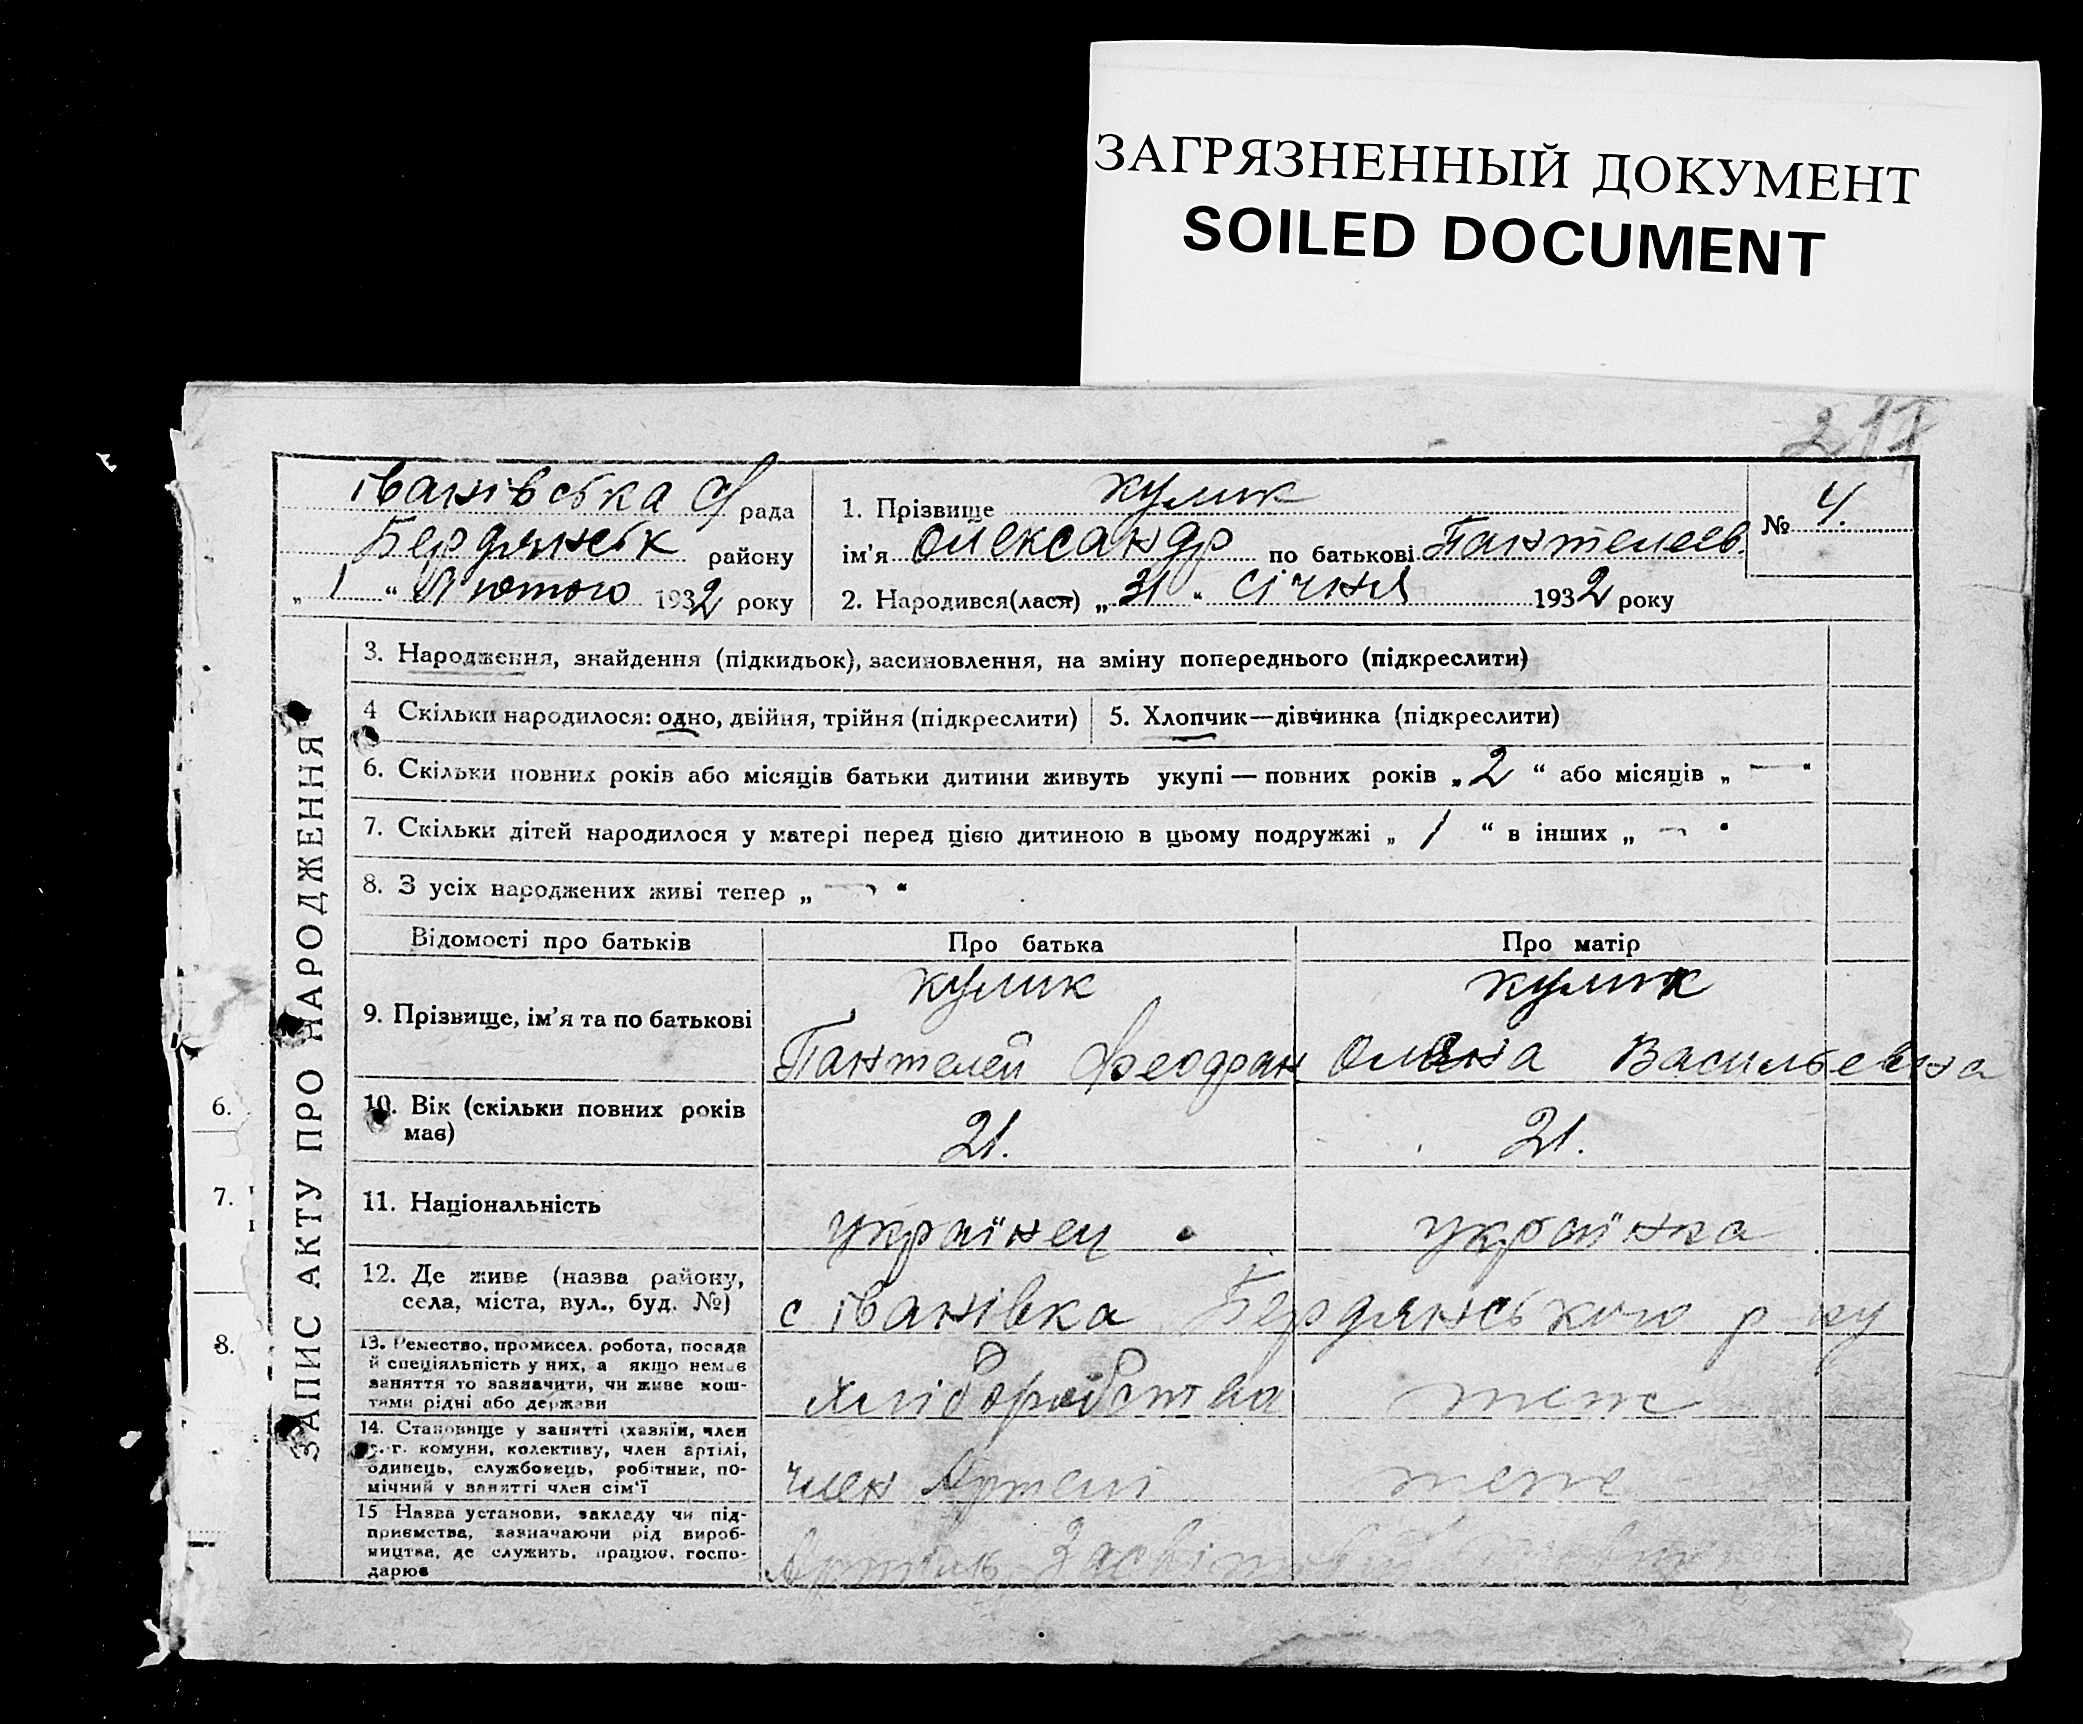 ЗАГРЯЗНЕННЫЙ ДОКУМЕНТ
SOILED DOCUMENT
івановська с/ рада
Бердянськ району
„ 1 “ Лютого 1932 року
1. Прізвище Кулик
ім'я Олександр по батькові Пантелеев.
2. Народився(лася) „ 31 “ січня 1932 року
№ 4.
ЗАПИС АКТУ ПРО НАРОДЖЕННЯ
3. Народження, знайдення (підкидьок), засиновлення, на зміну попереднього (підкреслити)
4 Скільки народилося: одно, двійня, трійня (підкреслити)
5. Хлопчик—дівчинка (підкреслити)
6. Скільки повних років або місяців батьки дитини живуть укупі — повних років „ 2 “ або місяців „ — “
7. Скільки дітей народилося у матері перед цією дитиною в цьому подружжі „ 1 “ в інших „ — “
8. З усіх народжених живі тепер „ — “
Відомості про батьків Про батька Про матір
9. Прізвище, ім'я та по батькові
Кулик
Пантелей Феодран
Кулик
Олена Васильевна
10. Вік (скільки повних років
має)
21.
21.
11. Національність
українец
українка
12. Де живе (назва району,
села, міста, вул., буд. №)
с івановка Бердянського р ну
13. Ремество, промисел, робота, посада
й спеціяльність у них, а якщо немає
заняття то зазначити, чи живе кош-
тами рідні або держави
хліборобства
теж
14. Становище у занятті (хазяїн, член
с. г. комуни, колективу, член артілі,
одинець, службовець, робітник, по-
мічний у занятті член сім'ї
член Артелі
теж
15 Назва установи, закладу чи під-
приємства, зазначаючи рід вироб-
ництва, де служить, працює, госпо-
дарює
Артіль
6.
7.
8.